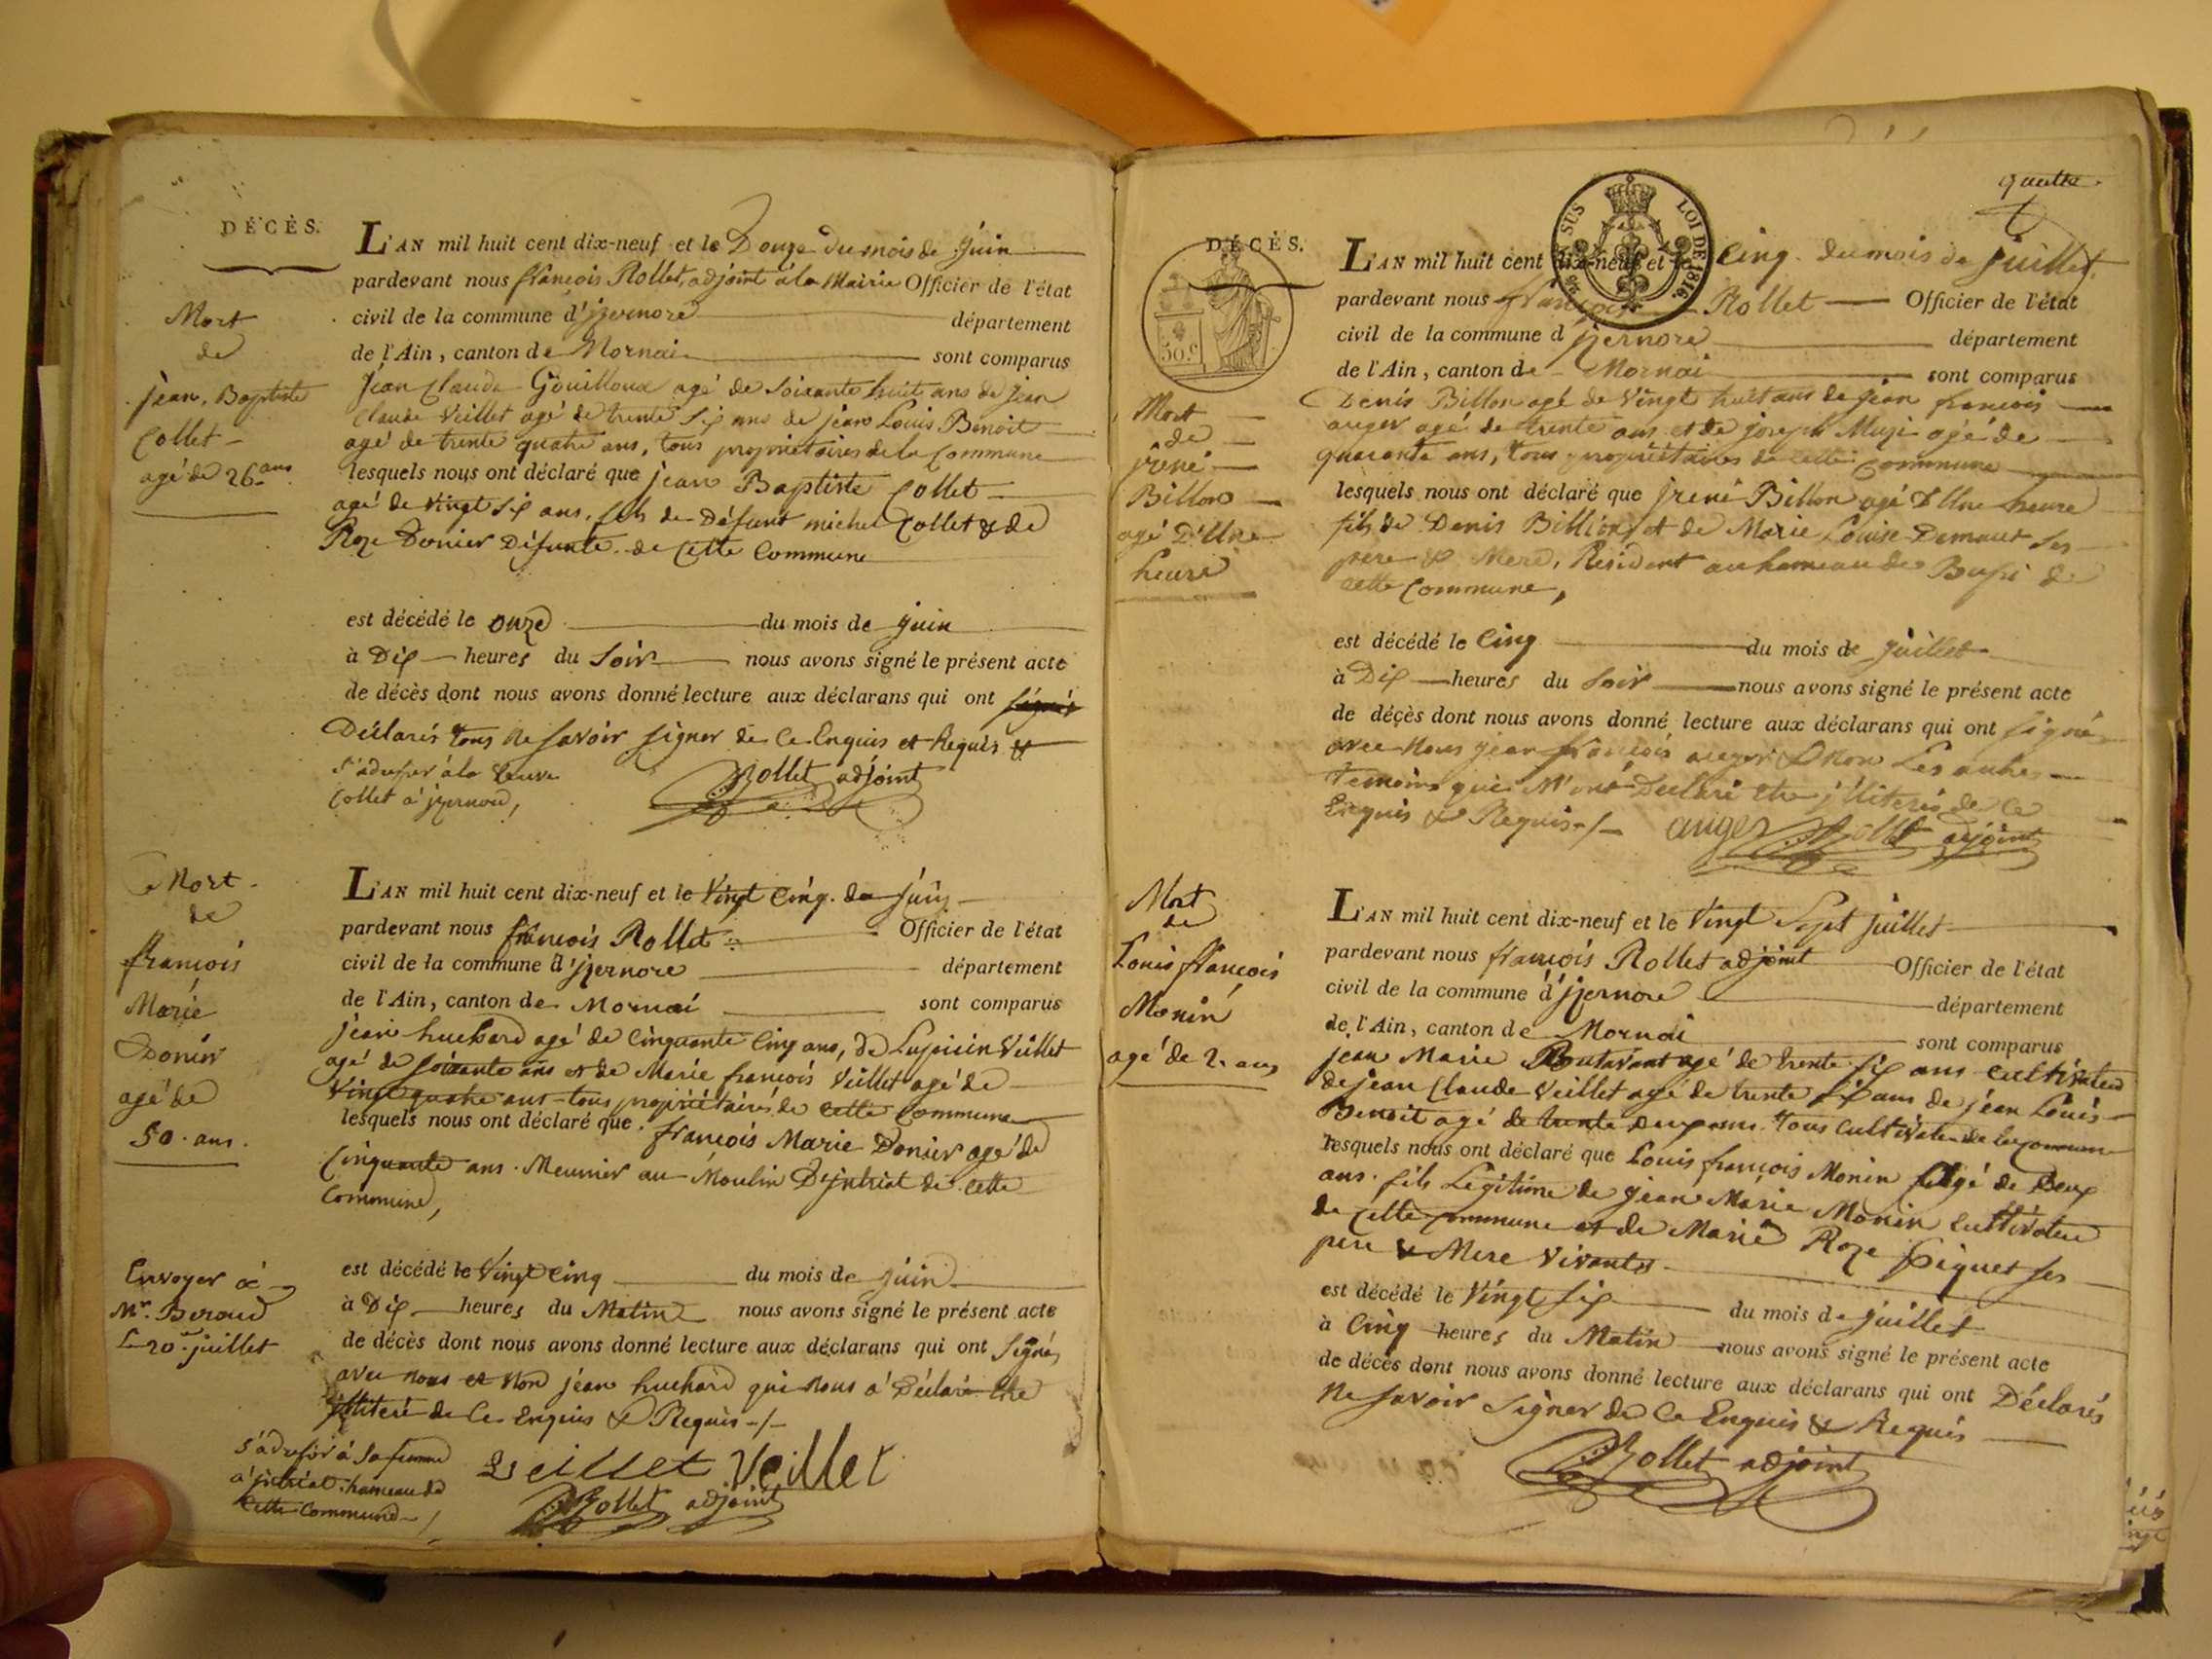 DÉCÈS.
L'AN mil huit cent dix-neuf et le Douze du mois de Juin
pardevant nous françois Rollet, adjoint à la Mairie Officier de l'état
civil de la commune d'jzernore département
de l'Ain, canton de Mornai sont comparus
Jean Claude Gouilloux agé de Soixante huit ans de Jean
Claude Veillet agé de trente Six ans de jean Louis Benoit
agé de trente quatre ans, tous proprietaires de la Commune
lesquels nous ont déclaré que jean Baptiste Collet
agé de vingt Six ans, fils de Défunt michel Collet & de
Roze Donier Défunte de Cette Commune
est décédé le onze du mois de juin
à Dix heures du Soir nous avons signé le présent acte
de décès dont nous avons donné lecture aux déclarans qui ont signés
Déclarés tous ne savoir signer de Ce Enquis et Requis
S'adresser à la veuve
Collet à jzernore,
Rollet adjoint
Mort
de
jean, Baptiste
Collet
agé de 26 ans
L'AN mil huit cent dix-neuf et le Vingt Cinq de Juin
pardevant nous françois Rollet Officier de l'état
civil de la commune d'jzernore département
de l'Ain, canton de Mornai sont comparus
jean huchard agé de Cinquante Cinq ans, de Lupicin Veillet
agé de soixante ans et de Marie françois Veillet agé de
Vingt quatre ans tous propriétaires de cette Commune
lesquels nous ont déclaré que françois Marie Donier agé de
Cinquante ans. Meunier au Moulin D'jntriat de cette
Commune,
est décédé le Vingt Cinq du mois de juin
à Dix heures du Matin nous avons signé le présent acte
de décès dont nous avons donné lecture aux déclarans qui ont Signés
avec nous et non jean huchard qui nous a Déclaré être
jlliteré de Ce Enquis & Requis
S'adresser à Sa femme
à jntriat hameau de
Cette Commune
Veillet Veillet
Rollet adjoint
Mort
de
françois
Marie
Donier
agé de
50. ans.
Envoyer à
Mr. Beroud
Le 20 juillet
quatre.
DÉCÈS.
50.c
SUS LOI DE 1816.
L'AN mil huit cent dix-neuf et le Cinq du mois de Juillet
pardevant nous françois Rollet Officier de l'état
civil de la commune d jzernore département
de l'Ain, canton de Mornai sont comparus
Denis Billon agé de Vingt huit ans de Jean françois
auger agé de trente ans et de joseph Muzi agé de
quarante ans, tous proprietaires de cette Commune
lesquels nous ont déclaré que jrené Billon agé D'Une heure
fils de Denis Billion et de Marie Louise Demaut Ses
pere & Mere, Résident au hameau de Bussi de
cette Commune,
est décédé le Cinq du mois de Juillet
à Dix heures du Soir nous avons signé le présent acte
de décès dont nous avons donné lecture aux déclarans qui ont signé
avec Nous jean françois auger & Non Les autres
temoins qui M'ont Declaré être jlliterés de Ce
Enquis & Requis
auger Rollet adjoint
Mort
de
jrené
Billon
agé D'Une
heure
L'AN mil huit cent dix-neuf et le Vingt Sept juillet
pardevant nous françois Rollet adjoint Officier de l'état
civil de la commune d'jzernore département
de l'Ain, canton de Mornai sont comparus
jean Marie Boutavant agé de trente Six ans Cultivateur
de jean Claude Veillet agé de trente Six ans de jean Louis
Benoit agé de trente Deux ans tous Cultivateurs de la Commune
lesquels nous ont déclaré que Louis françois Monin agé de Deux
ans. fils Legitime de jean Marie Monin Cultivateur
de Cette Commune et de Marie Roze Piquet ses
pere & Mere Vivants
est décédé le Vingt Six du mois de Juillet
à Cinq heures du Matin nous avons signé le présent acte
de décès dont nous avons donné lecture aux déclarans qui ont Déclarés
Ne savoir Signer de Ce Enquis & Requis
Rollet adjoint
Mort
de
Louis françois
Monin
agé de 2. ans